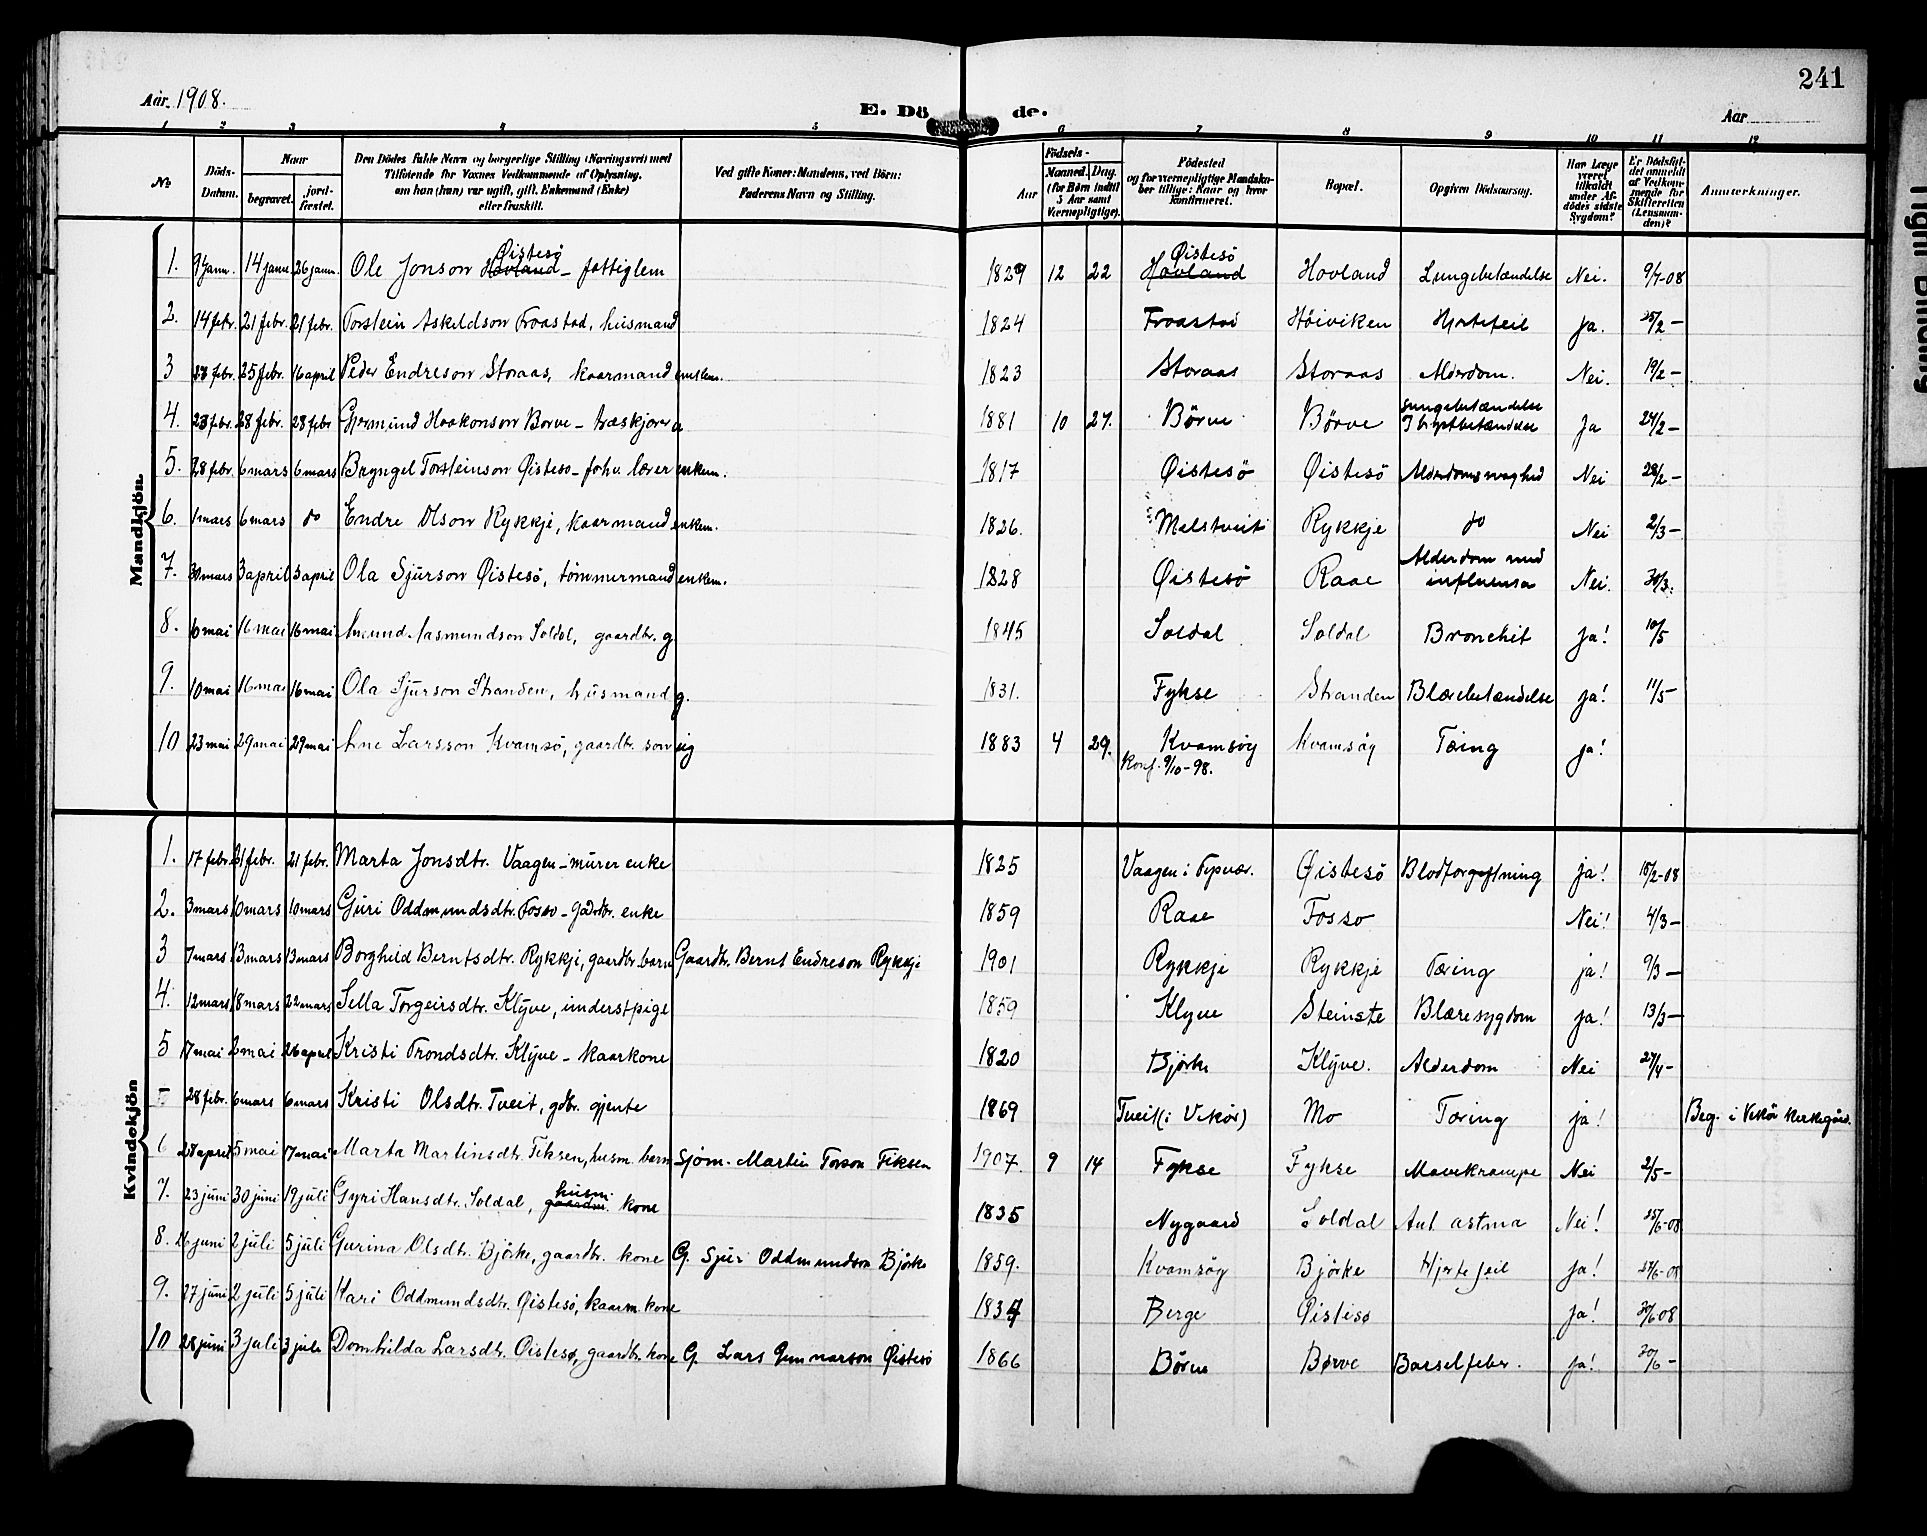 241
Aar. 1908.
E. Döde.
Aar
1 2 3 4 5 6 7 8 9 10 11 12
No
Döds-Datum.
Naar
begravet.
jord-fæstet.
Den Dödes fulde Navn og borgerlige Stilling (Næringsvei) med
Tilföiende for Voxnes Vedkommende af Oplysning,
om han (hun) var ugift, gift, Enkemand (Enke)
eller fraskilt.
Ved gifte Koner: Mandens, ved Börn:
Faderens Navn og Stilling.
Födsels-
Aar
Maaned. Dag.
(for Börn indtil
5 Aar samt
Værnepligtige).
Födested
og for vernepligtige Mandska-
ber tillige: Naar og hvor
konfirmeret.
Bopæl.
Opgiven Dödsaarsag.
Har Læge
været
tilkaldt
under Af-
dödes sidste
Sygdom?
Er Dödsfal-
det anmeldt
af Vedkom-
mende for
Skifteretten
(Lensman-
den)?
Anmærkninger.
Mandkjön.
1. 9 janr. 14 janr. 26 janr. Ole Jonson Hovland Øistesö - fattiglem 1829 12 22 Hovland Øistesö Hovland Lungebetændelse Nei. 9/1-08
2. 14 febr. 21 febr. 21 febr. Torstein Askeldson Froastad, husmand 1824 Froastad Höiviken Hjertefeil Ja. 25/2 -
3 febr. 25 febr. 16 april Peder Endreson Storaas, kaarmand enkem. 1823 Storaas Storaas Alderdom. Nei. 19/2 -
4. 23 febr. 28 febr. 28 febr Gjermund Haakonson Børve - træskjærer u 1881 10 27. Børve Børve Lungebetændelse Brystbetændelse Ja 24/2 -
5. 28 febr. 6 mars 6 mars Bryngel Torsteinson Øistesø - forhv. lærer enkem. 1817 Øistesö Øistesö Alderdomsvaghed Nei 28/2 -
6. 1 mars 6 mars do Endre Olson Rykkje, kaarmand enkem. 1826. Malstveit Rykkje do Nei 2/3 -
7. 30 mars 3 april 3 april Ola Sjurson Øistesö, tömmermand enkem. 1828 Øistesö Raae Alderdom med influensa Nei. 30/3.
8. 10 mai 16 mai 16 mai Amund Aasmundson Soldal, gaardbr. g 1845 Soldal Soldal Bronchit Ja! 10/5
9. 10 mai 16 mai 16 mai Ola Sjurson Stranden, husmand g. 1831. Fykse Stranden Blærebetændelse ja! 11/5 -
10 23 mai 29 mai 29 mai Arne Larsson Kvamsö, gaardbr. son ug 1883 4 29. Kvamsöy Konf. 9/10-98. Kvamsöy Tæring ja!
Kvindekjön
1. 17 febr. 21 febr. 21 febr. Marta Jonsdtr. Vaagen - murer enke 1825 Vaagen i Tysvær. Øistesö Blodforgiftning ja! 18/2-08
2. 3 mars 10 mars 10 mars Guri Oddmundsdtr. Fosso - gardbr. enke 1859 Raae Fosso Nei! 4/3 -
3 7 mars 13 mars 13 mars Borghild Berntsdtr. Rykkje, gaardbr. barn Gaardbr. Bernt Endreson Rykkje 1901 Rykkje Rykkje Tæring ja! 9/3 -
4. 12 mars 18 mars 22 mars Sella Torgeirsdtr. Klyve, inderstpige 1859 Klyve Steinstø Blæresygdom ja! 13/3 -
5 17 mai 2 mai 26 april Kristi Trondsdtr. Klyve - kaarkone 1820 Bjørke Klyve. Alderdom Nei 27/4 -
5 28 febr. 6 mars 6 mars Kristi Olsdtr. Tveit, gdbr. gjente 1869 Tveit (i Vikör) Mo Tæring ja! Beg. i Vikör kirkegård.
6 28 april 5 mai 17 mai Marta Martinsdtr. Fiksen, husm. barn Sjøm. Martin Torson Fiksen 1907. 9 14 Fykse Fykse Mavekrampe Nei 2/5 -
7. 23 juni 30 juni 19 juli Gyri Hansdtr. Soldal, gaardm. husm. kone 1835 Nygaard Soldal Ant astma Nei! 25/6-08
8. 26 juni 2 juli 5 juli Gurina Olsdtr. Bjørke, gaardbr. kone G. Sjur Oddmundson Bjørke 1859. Kvamsöy Björke Hjertefeil ja! 27/6-08
9. 27 juni 2 juli 5 juli Kari Oddmundsdtr. Øistesö, kaarm. kone 1834 Berge Øistesø Ja! 30/6 08
10 28 juni 3 juli 3 juli Domhilda Larsdtr. Øistesø, gaardbr. kone G. Lars Gunnarson Øistesö 1866 Börve Børve Barselfeber. ja! 30/6 -